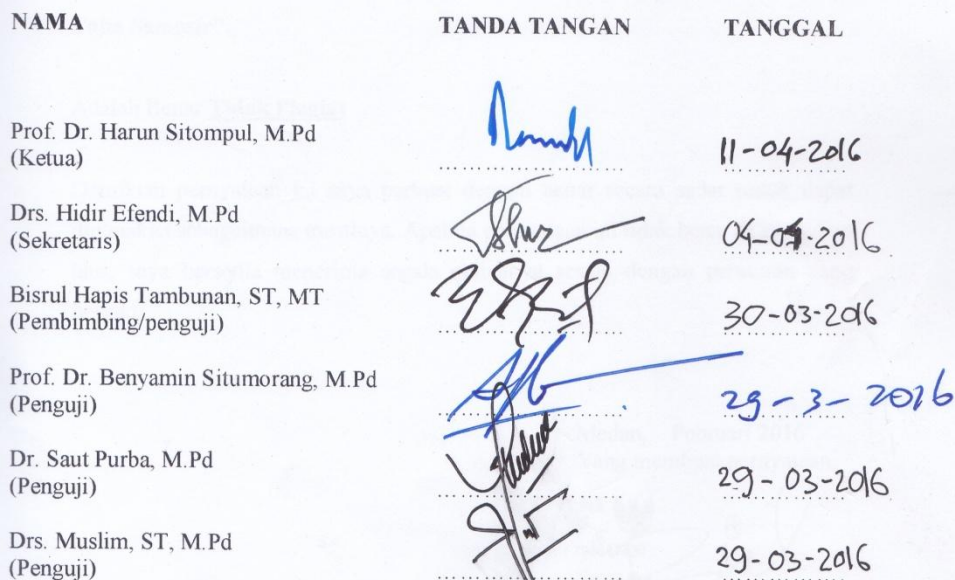 NAMA TANDA TANGAN TANGGAL
Prof. Dr. Harun Sitompul, M.Pd
(Ketua) 11-04-2016
Drs. Hidir Efendi, M.Pd
(Sekretaris) 04-04-2016
Bisrul Hapis Tambunan, ST, MT
(Pembimbing/penguji) 30-03-2016
Prof. Dr. Benyamin Situmorang, M.Pd
(Penguji) 29-3-2016
Dr. Saut Purba, M.Pd
(Penguji) 29-03-2016
Drs. Muslim, ST, M.Pd
(Penguji) 29-03-2016